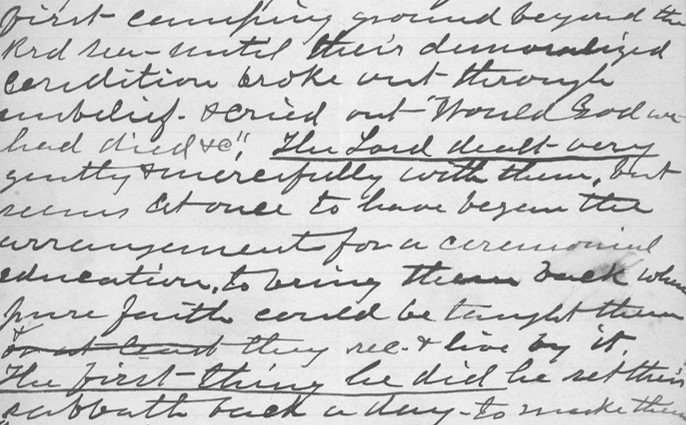 first camping ground beyond the
Red sea - until their demoralized
condition broke out through
unbelief. & cried out "Would God we
had died &c", The Lord dealt very
gently & mercifully with them, but
seems at once to have begun the
arrangement for a ceremonial
education, to bring them back where
pure faith could be taught them
& or at least they rec. & live by it.
The first thing he did he set their
sabbath back a day - to make them